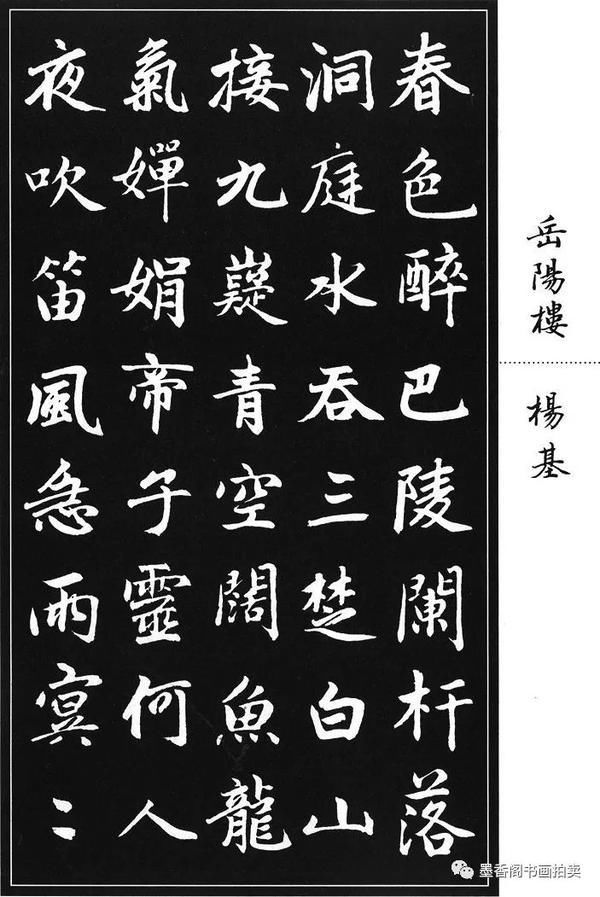 岳陽樓
楊基
春色醉巴陵闌杆落
洞庭水吞三楚白山
接九嶷青空闊魚龍
氣嬋娟帝子靈何人
夜吹笛風急雨冥〻
墨香阁书画拍卖